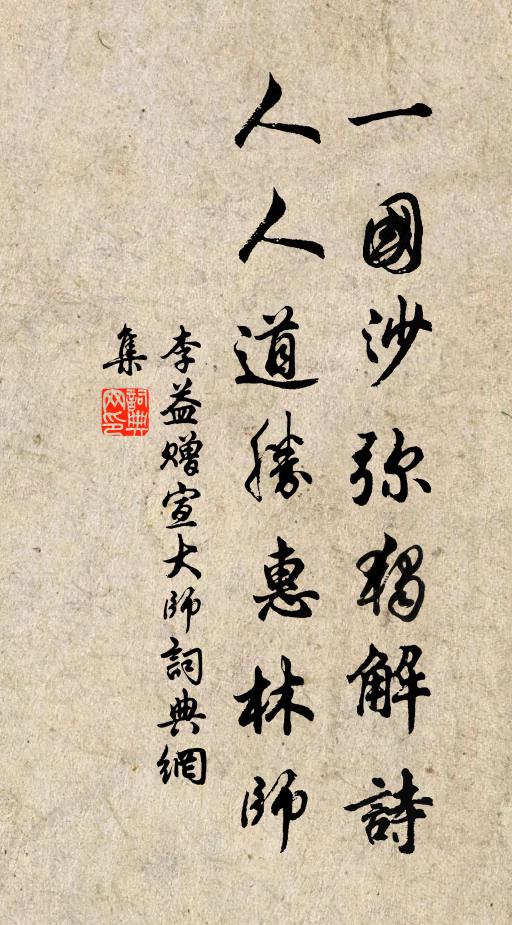 一國沙弥獨解詩
人人道勝惠林師
李益赠宣大師詞典網
集
詞典網印